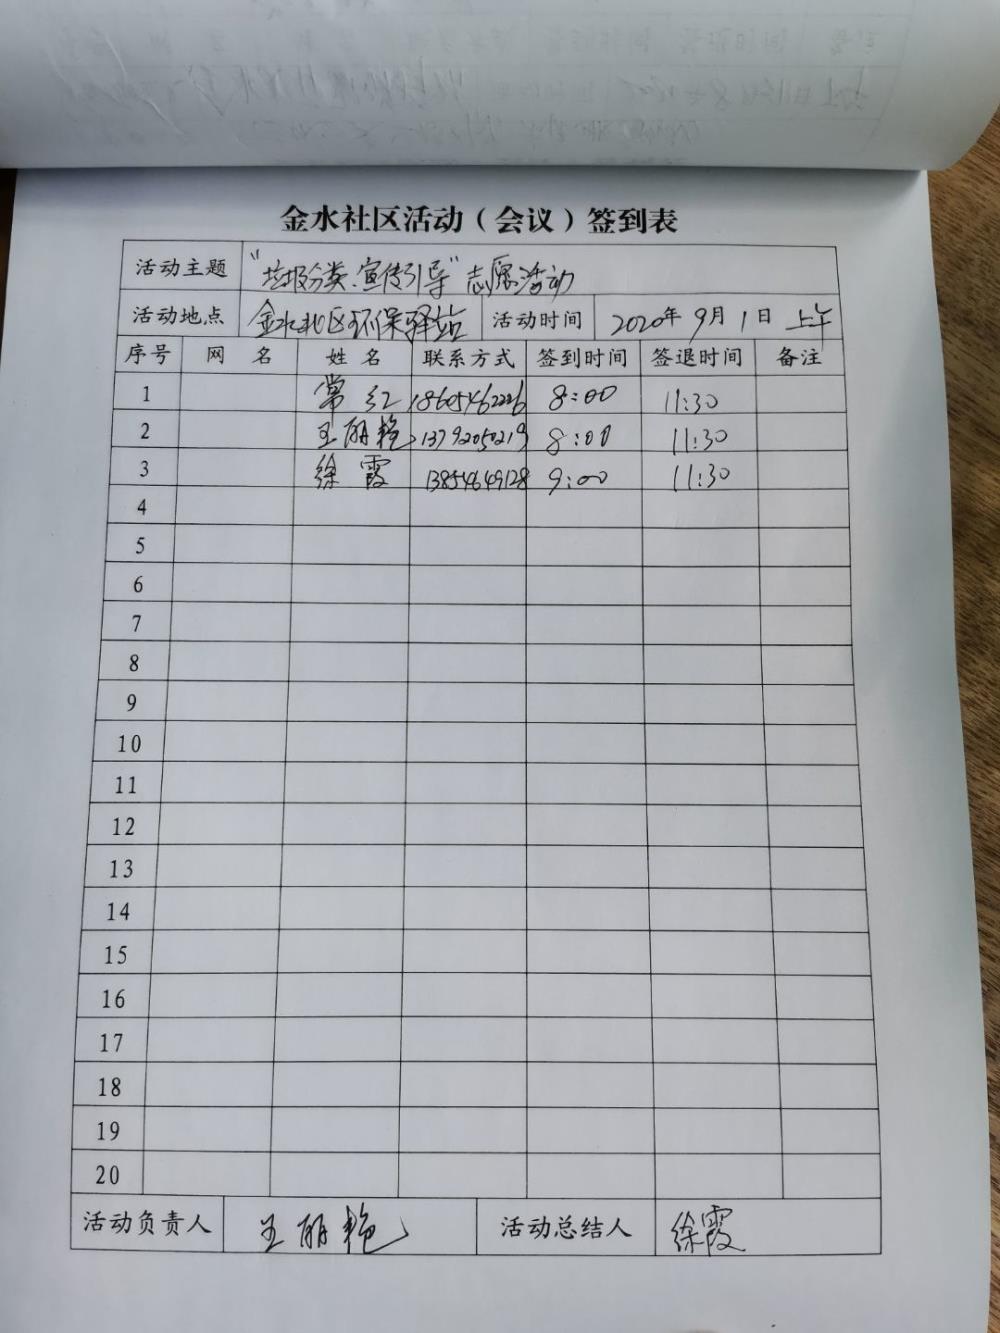 金水社区活动（会议）签到表
活动主题 “垃圾分类、宣传引导”志愿活动
活动地点 金水社区环保驿站 活动时间 2020年9月1日 上午
序号 网名 姓名 联系方式 签到时间 签退时间 备注
1 常红 18605462226 8:00 11:30
2 王丽艳 13792050219 8:00 11:30
3 徐霞 13854649128 9:00 11:30
4
5
6
7
8
9
10
11
12
13
14
15
16
17
18
19
20
活动负责人 王丽艳 活动总结人 徐霞